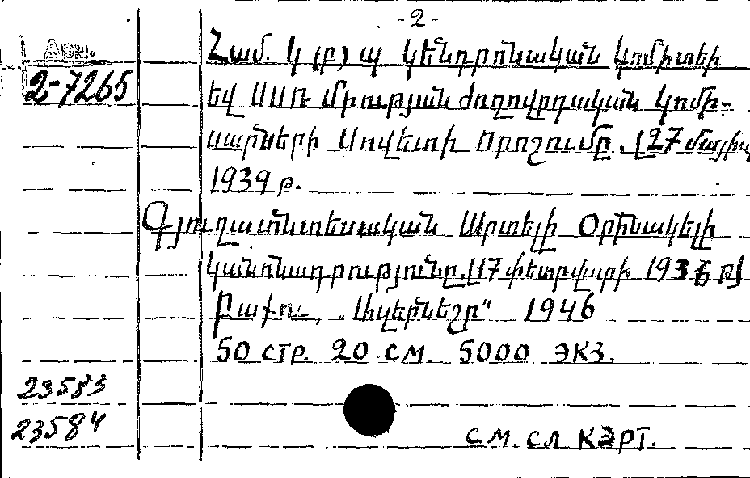 -2-
Համ. Կ(բ)պ կենդրոնական կոմիտեի
2-7265
եվ ՍՍՌ Մրության ժողովրդական կոմի-
սարների Սովետի Որոշումը. (27 մայիսի
1939թ.
Գյուղատնտեսական Արտելի Օրինակելի
կանոնադրությունը (17 փետրվարի 1935թ)
Բաքու, „Ազերնեշր" 1946
50 стр. 20 см. 5000 экз.
23583
23584
см. сл карт.